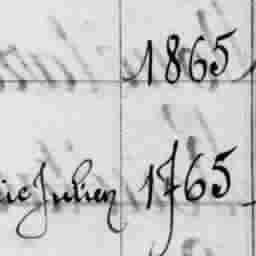 1865
ic Julien 1765